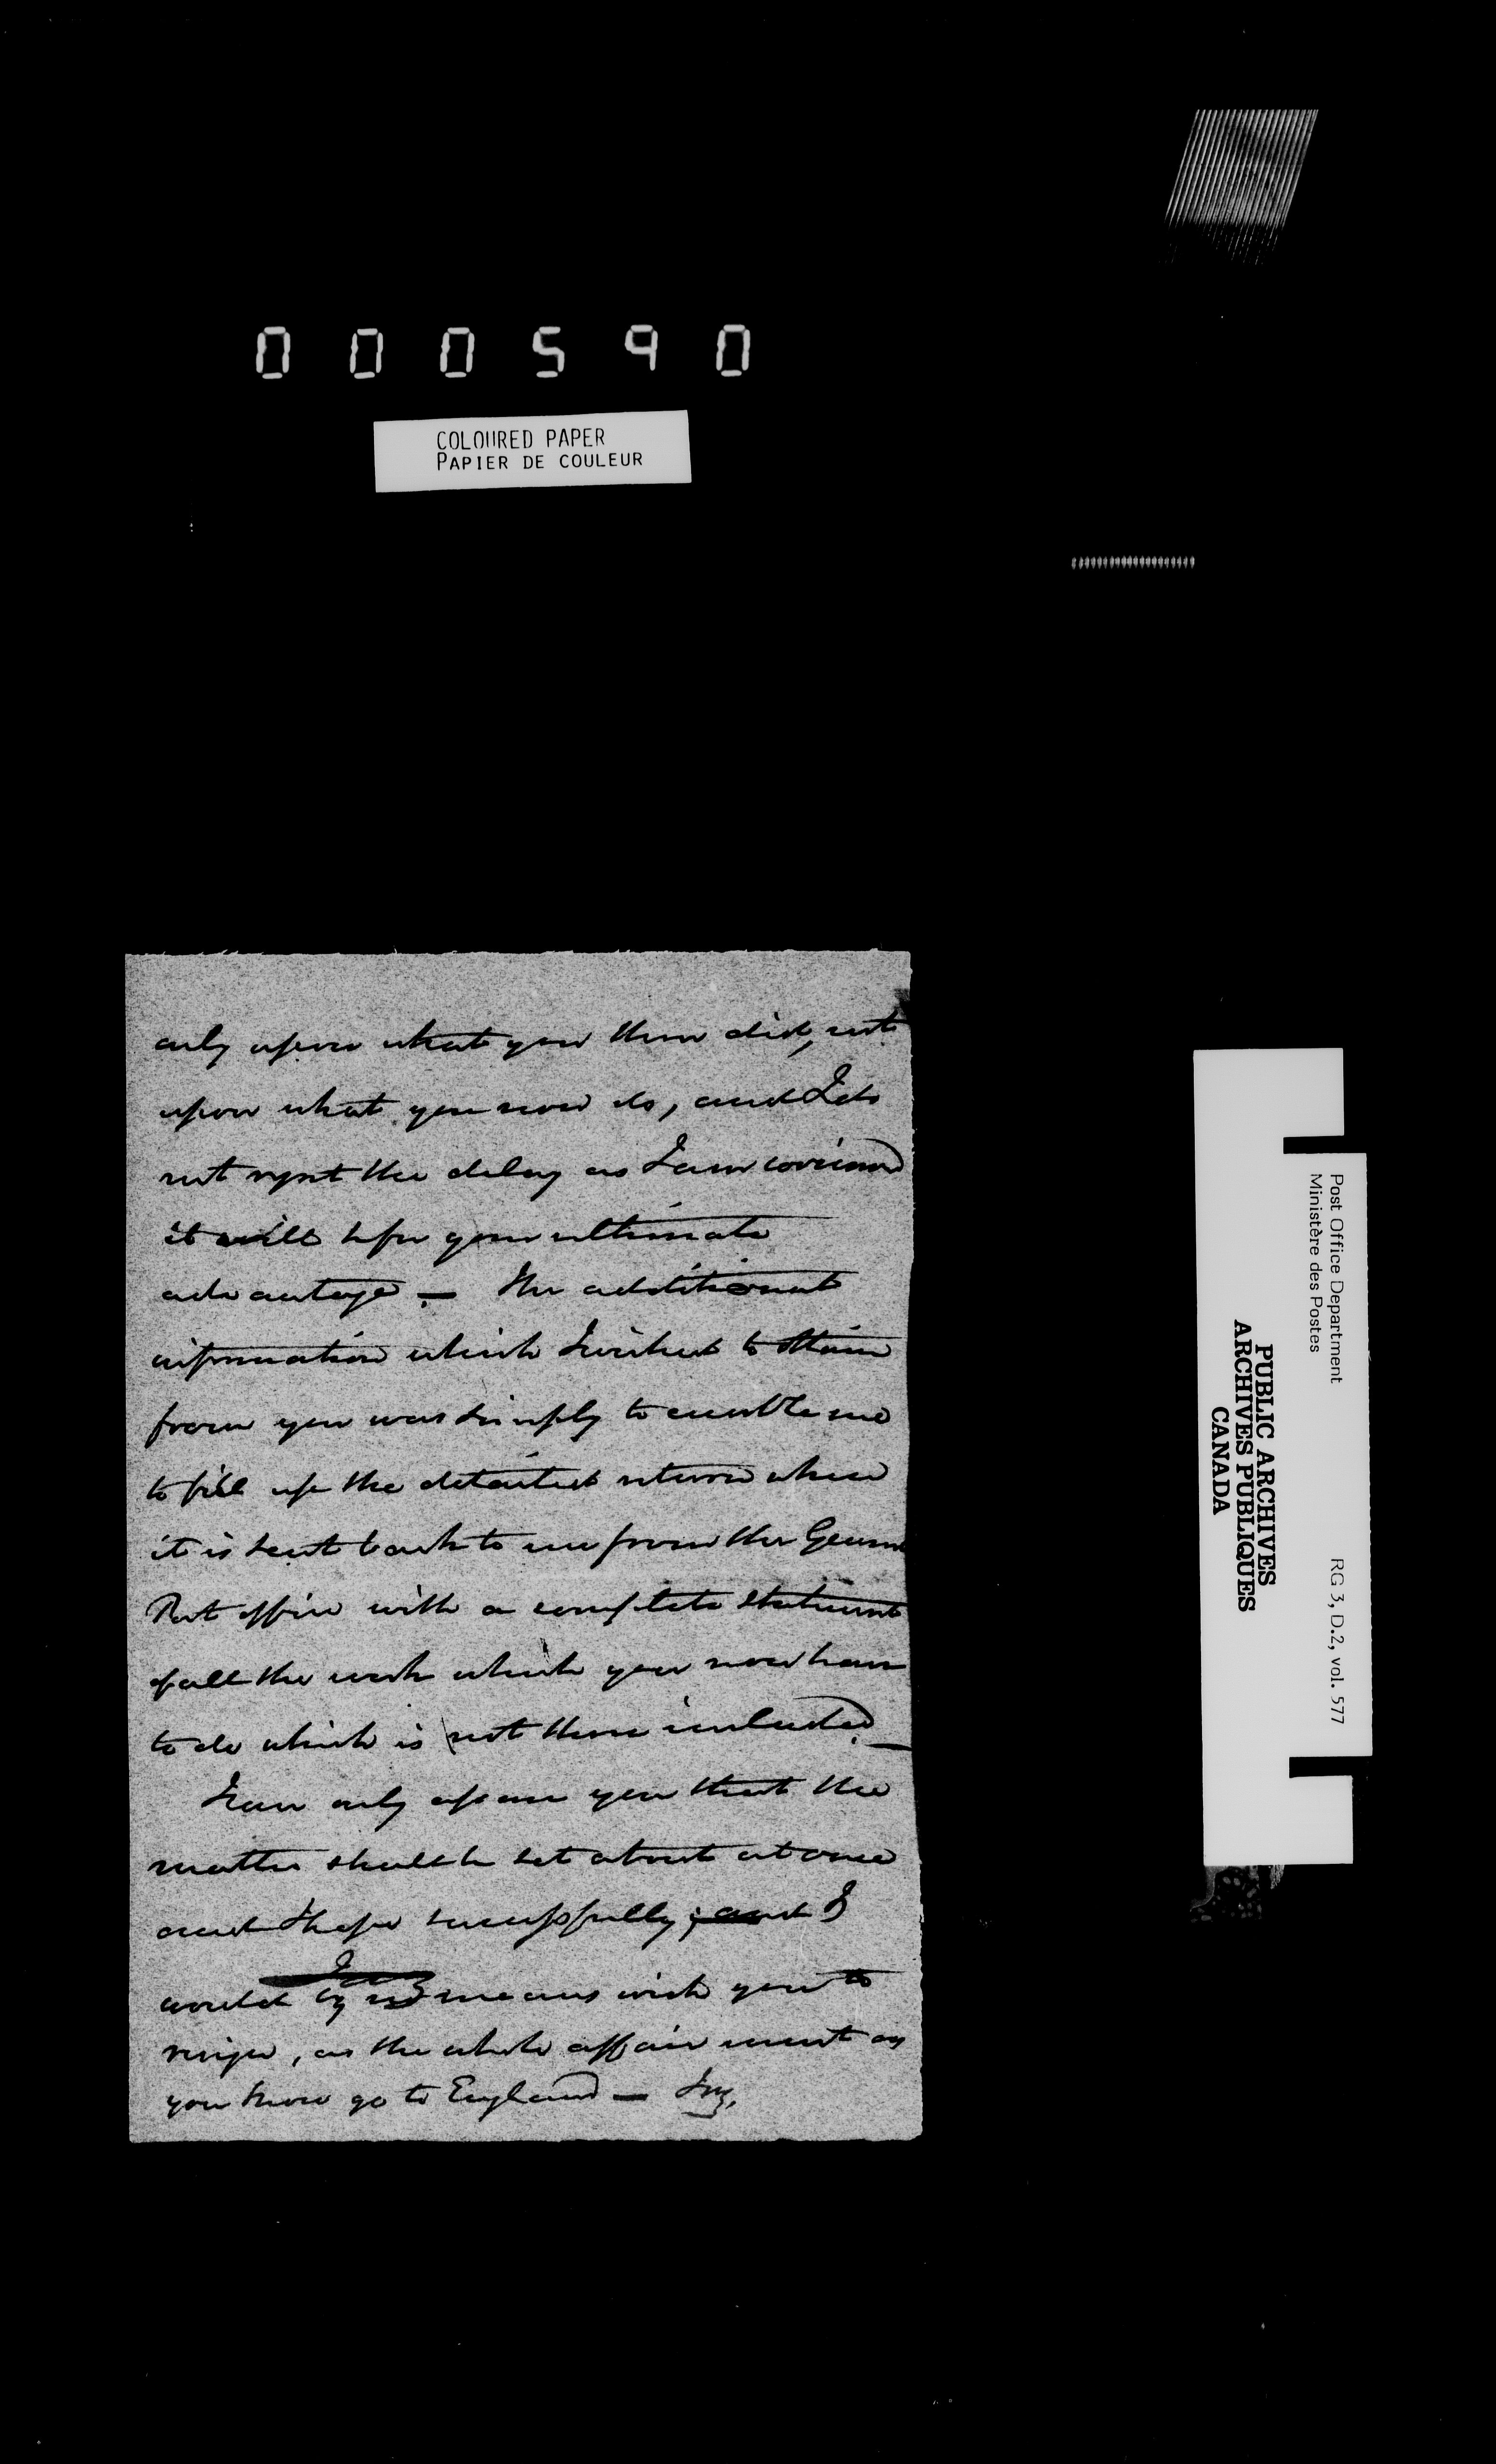 000590
COLOURED PAPER
PAPIER DE COULEUR
only upon what you then did, not
upon what you now do, and I do
not regret the delay as I am convinced
it will be for your ultimate
advantage — The additional
information which I wished to obtain
from you was simply to enable me
to fill up the detailed return when
it is sent back to me from the General
Post office with a complete statement
of all the work which you now have
to do which is not there included —
I can only assure you that the
matter shall be set about at once
and I hope successfully; and I
would by no means wish you to
resign, as the whole affair must as
you know go to England —
Post Office Department
Ministère des Postes
RG 3, D.2, vol. 577
PUBLIC ARCHIVES
ARCHIVES PUBLIQUES
CANADA